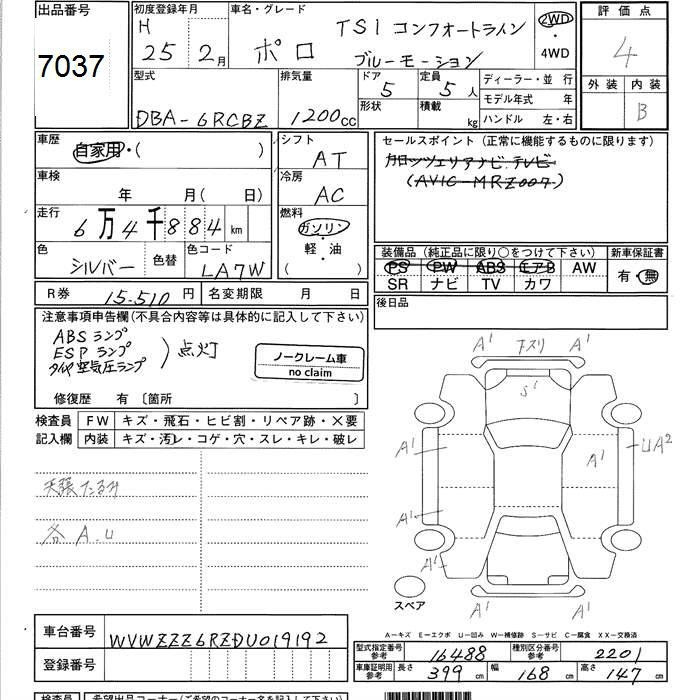 出品番号
7037
初度登録年月
H
25 2月
車名・グレード
ポロ TSI コンフォートライン
ブルーモーション
2WD
・
4WD
評価点
4
外装 内装
B
型式
DBA-6RCBZ
排気量
1200cc
ドア
5
形状
定員
5人
積載
kg
ディーラー・並 行
モデル年式 年
ハンドル 左・右
車歴
自家用・( )
シフト
AT
車検
年 月( 日)
冷房
AC
走行
6万4千884km
燃料
ガソリン
・
軽・油
( )
色
シルバー
色替
色コード
LA7W
セールスポイント (正常に機能するものに限ります)
カロッツェリアナビ・テレビ
(AVIC-MRZ007)
装備品 (純正品に限り○をつけて下さい)
PS PW ABS エアB AW
SR ナビ TV カワ
新車保証書
有・無
R券 15.510円 名変期限 月 日
後日品
注意事項申告欄(不具合内容等は具体的に記入して下さい)
ABSランプ
ESPランプ
タイヤ空気圧ランプ
)点灯
ノークレーム車
no claim
修復歴 有 〔箇所 〕
検査員
記入欄
FW キズ・飛石・ヒビ割・リペア跡・×要
内装 キズ・汚レ・コゲ・穴・スレ・キレ・破レ
天張たるみ
各 A.U
A' フスリ A'
S'
A' A' UA2
A'
A' A'
スペア
A―キズ E―エクボ U―凹み W―補修跡 S―サビ C―腐食 XX―交換済
車台番号 WVWZZZ6RZDU019192
登録番号
型式指定番号
参考
16488
種別区分番号
参考
2201
車庫証明用
参考
長さ 399cm 幅 168cm 高さ 147cm
検査員 希望出品コーナー(ご希望のコーナー名を記入して下さい)